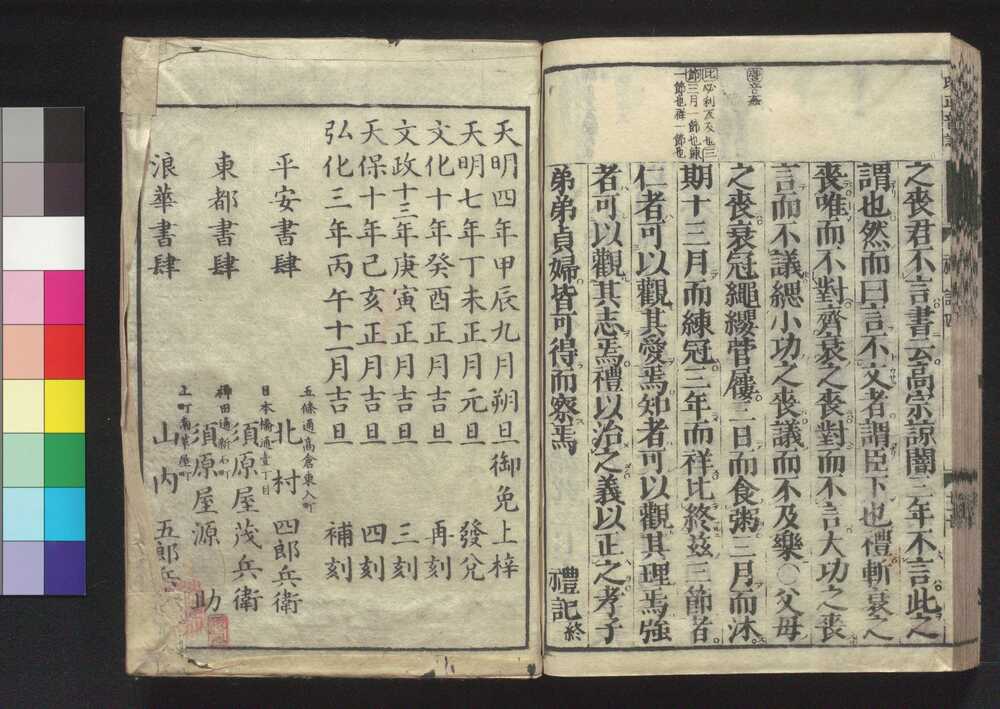 之喪君不言書云高宗諒闇三年不言此之
謂也然而曰言不文者謂臣下也禮斬衰之
喪唯而不對齊衰之喪對而不言大功之喪
言而不議緦小功之喪議而不及樂○父母
之喪衰冠繩纓菅屨三日而食粥三月而沐
期十三月而練冠三年而祥比終茲三節者
仁者可以觀其愛焉知者可以觀其理焉強
者可以觀其志焉禮以治之義以正之孝子
弟弟貞婦皆可得而察焉
禮記終
比必利反及也三
節三月一節也練
一節也祥一節也
天明四年甲辰九月朔旦御免上梓
天明七年丁未正月元旦發兌
文化十年癸酉正月吉旦再刻
文政十三年庚寅正月吉旦三刻
天保十年己亥正月吉旦四刻
弘化三年丙午十一月吉旦補刻
五條通高倉東入町
平安書肆 北村四郎兵衛
日本橋通壹丁目
須原屋茂兵衛
東都書肆
神田通新石町
須原屋源助
浪華書肆
山内五郎兵